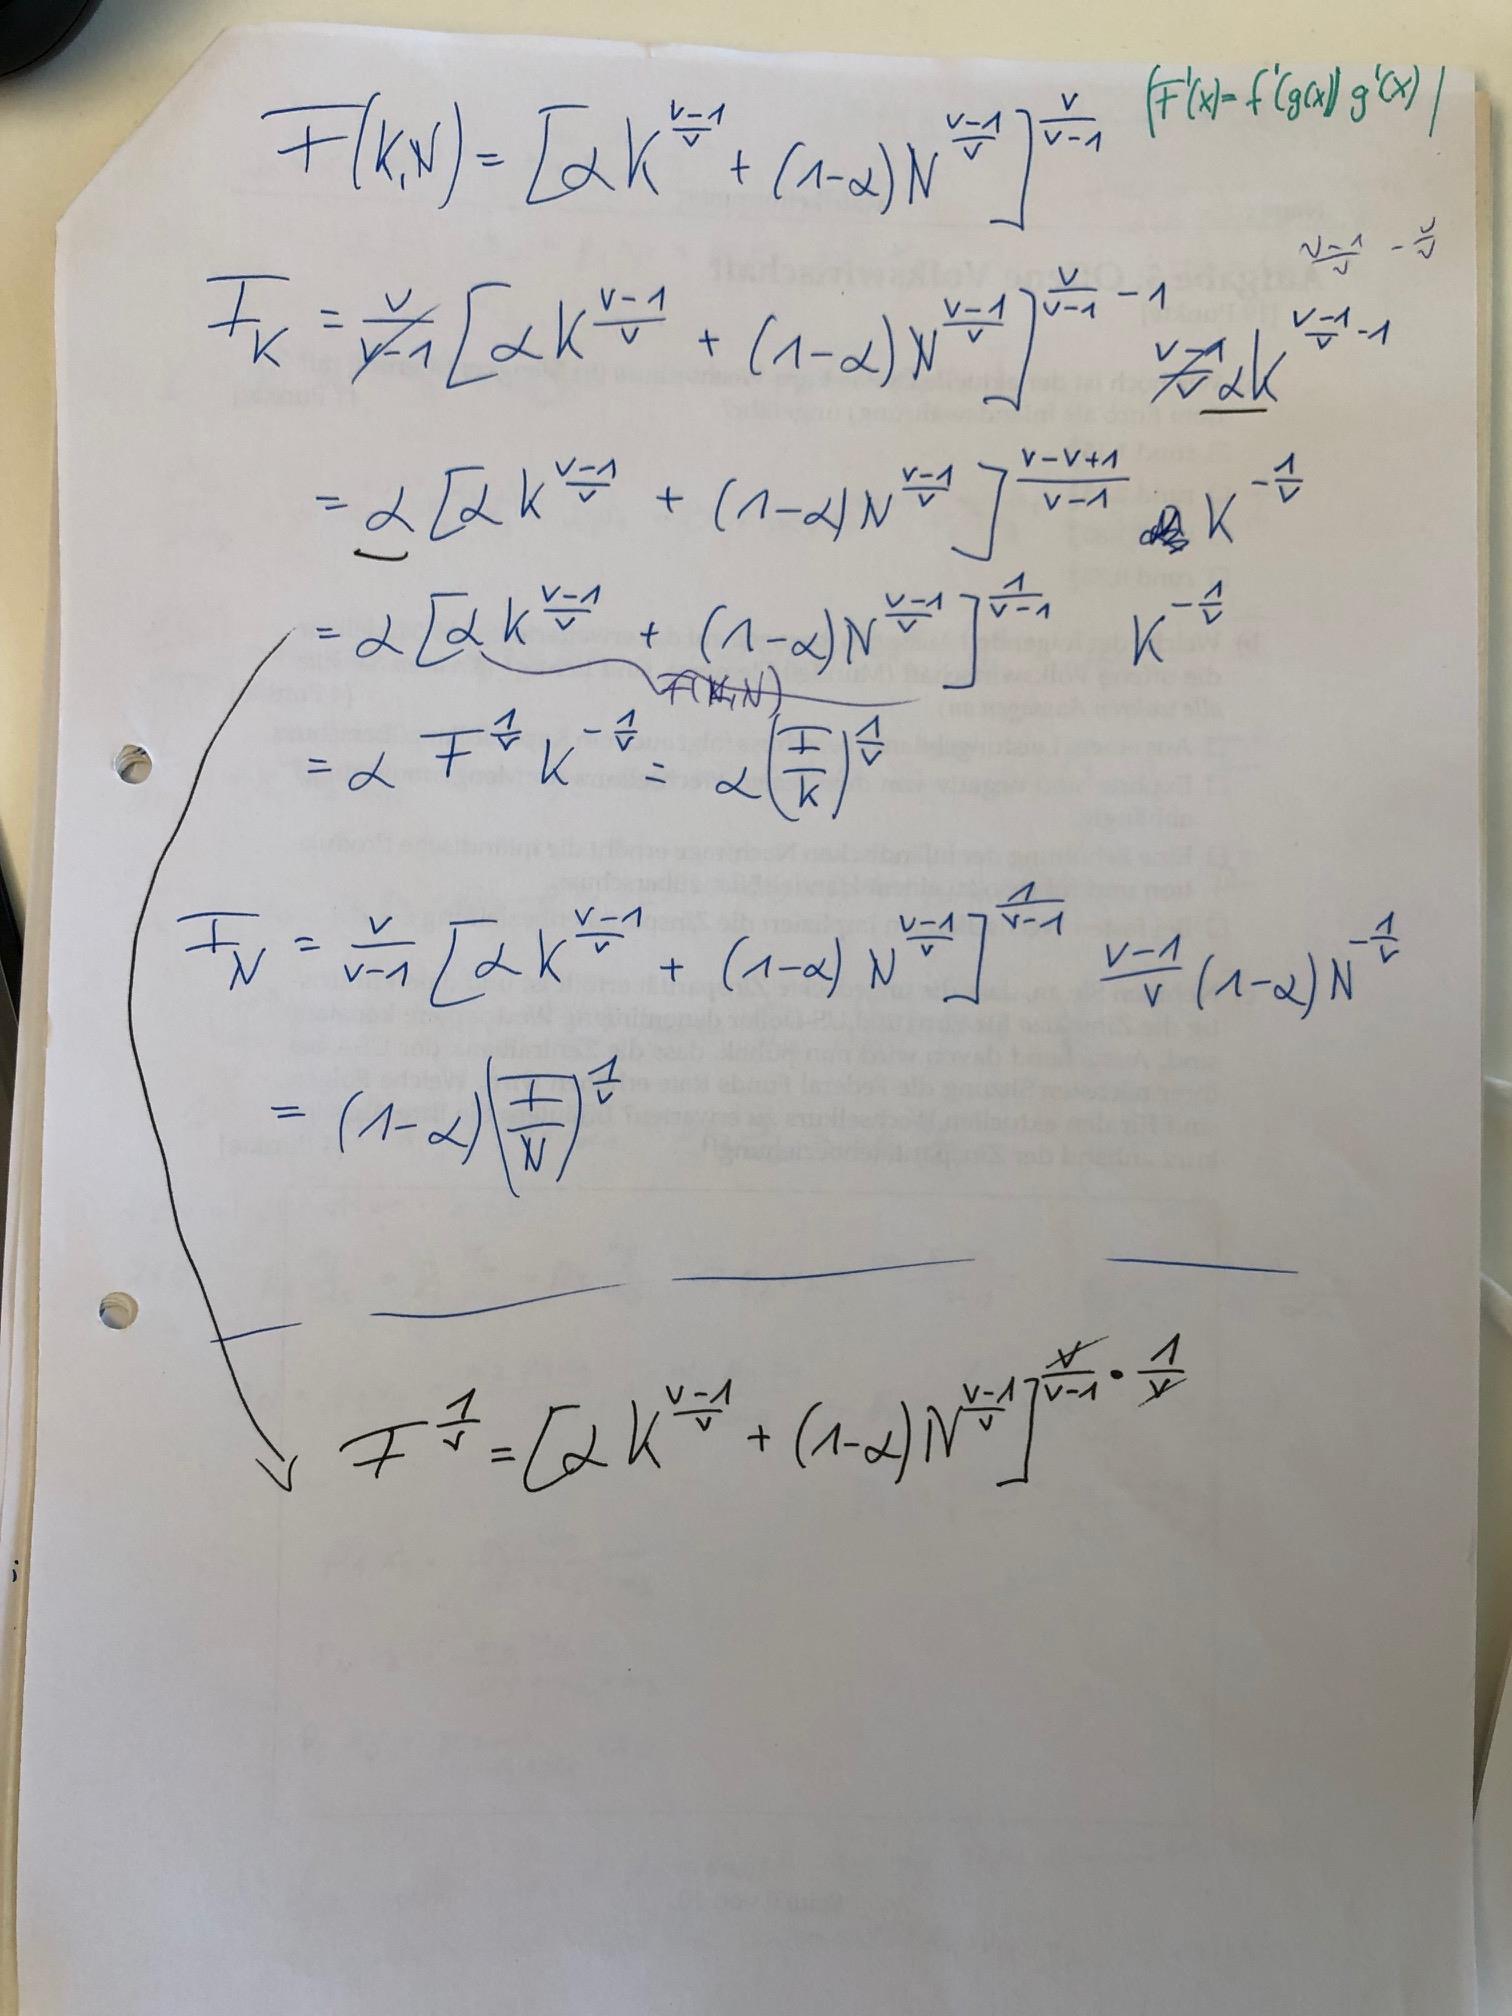 F'(x) = f'(g(x)) g'(x)
F(K,N) = [αK^((v-1)/v) + (1-α)N^((v-1)/v)]^(v/(v-1))
(v-1)/v - v/v
F_K = v/(v-1) [αK^((v-1)/v) + (1-α)N^((v-1)/v)]^(v/(v-1) - 1) (v-1)/v αK^((v-1)/v - 1)
= α[αK^((v-1)/v) + (1-α)N^((v-1)/v)]^((v-v+1)/(v-1)) K^(-1/v)
= α[αK^((v-1)/v) + (1-α)N^((v-1)/v)]^(1/(v-1)) K^(-1/v)
F(K,N)
= α F^(1/v) K^(-1/v) = α(F/K)^(1/v)
F_N = v/(v-1) [αK^((v-1)/v) + (1-α)N^((v-1)/v)]^(1/(v-1)) (v-1)/v (1-α)N^(-1/v)
= (1-α)(F/N)^(1/v)
F^(1/v) = [αK^((v-1)/v) + (1-α)N^((v-1)/v)]^(v/(v-1) · 1/v)